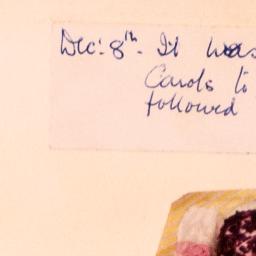 Dec: 8th. It was
Carols to
followed